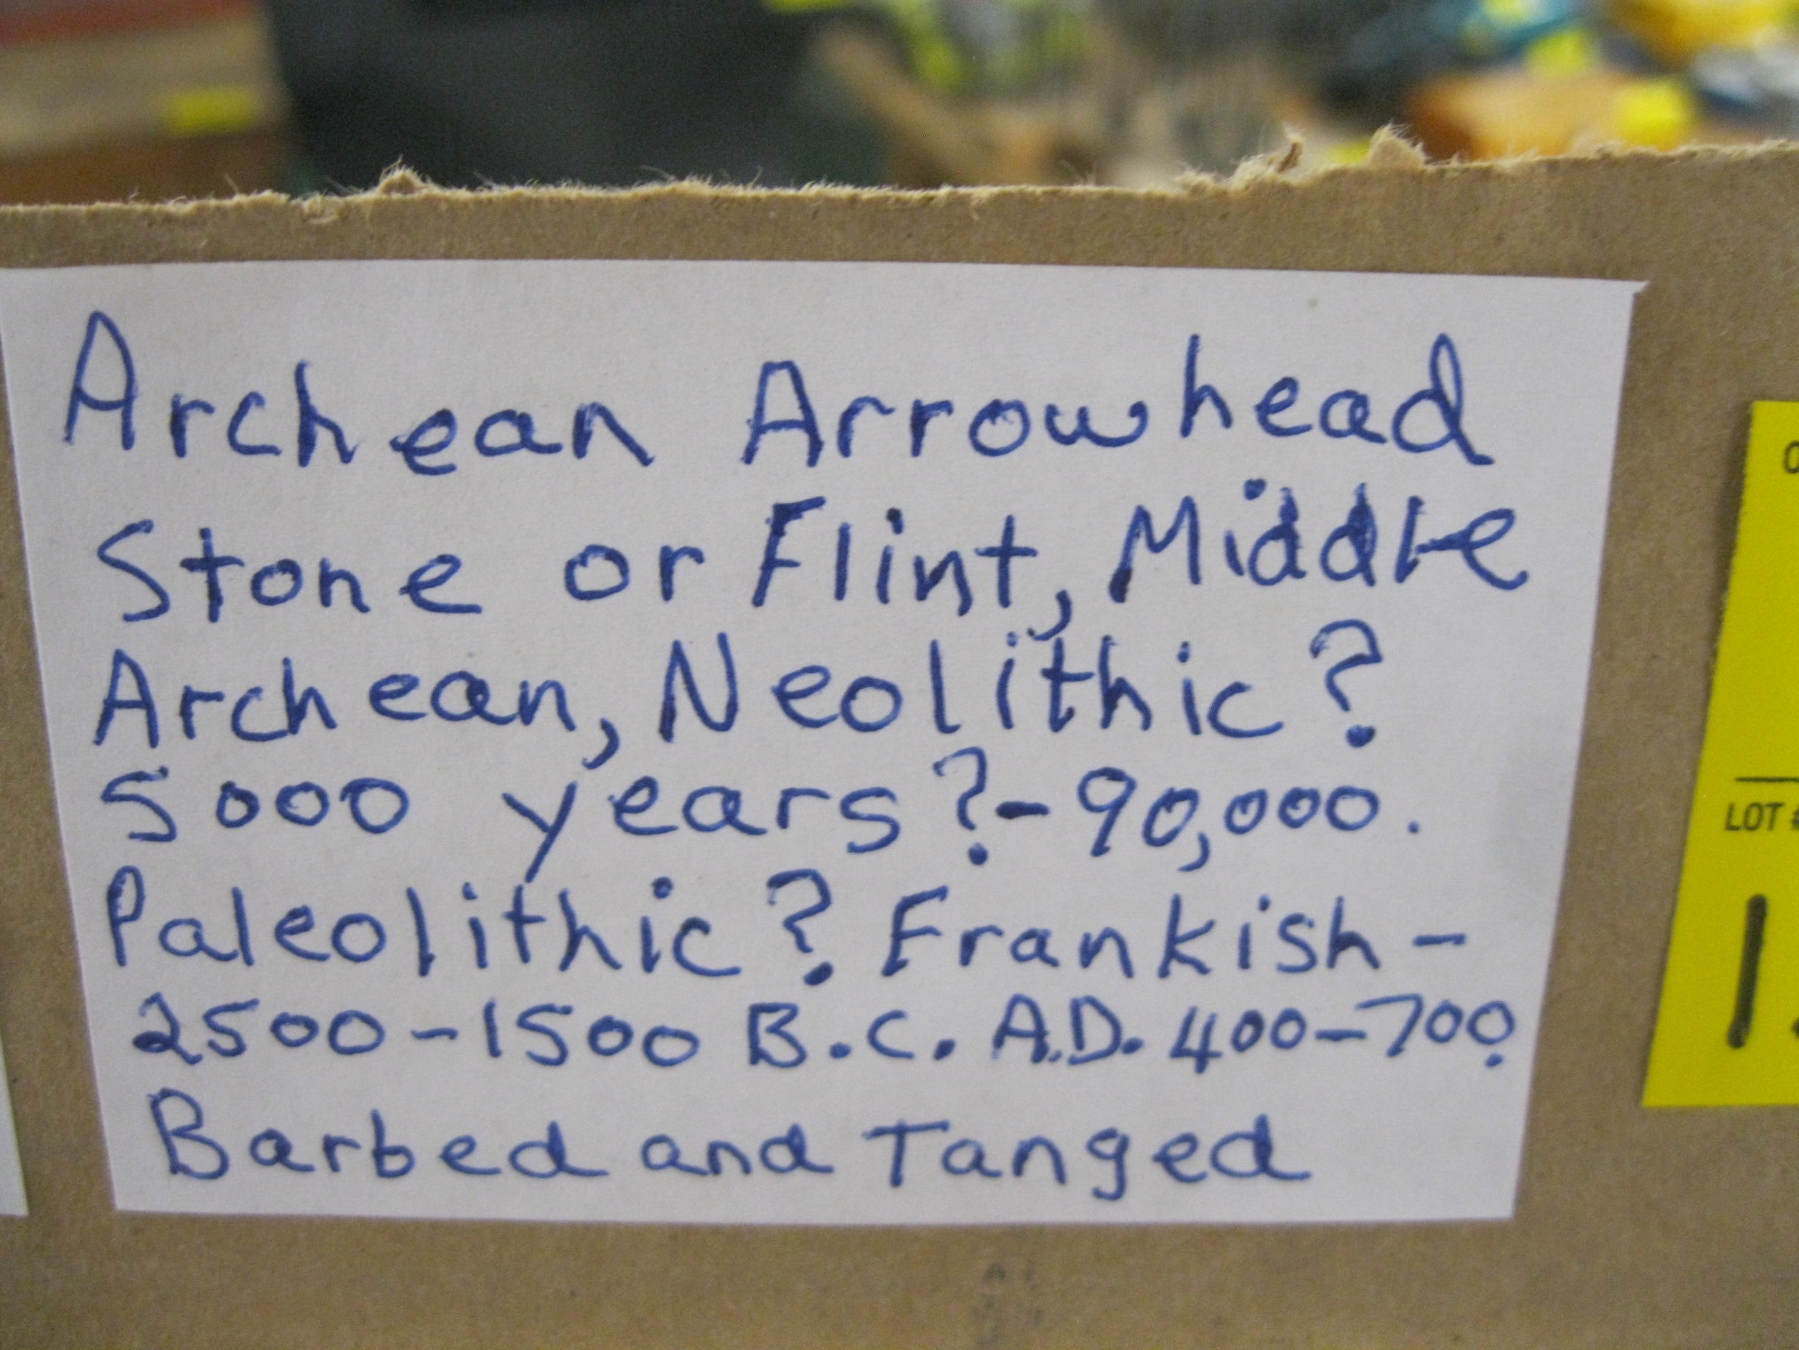 Archean Arrowhead
Stone or Flint, Middle
Archean, Neolithic?
5000 years?-90,000.
Paleolithic? Frankish-
2500-1500 B.C. A.D. 400-700?
Barbed and Tanged
LOT